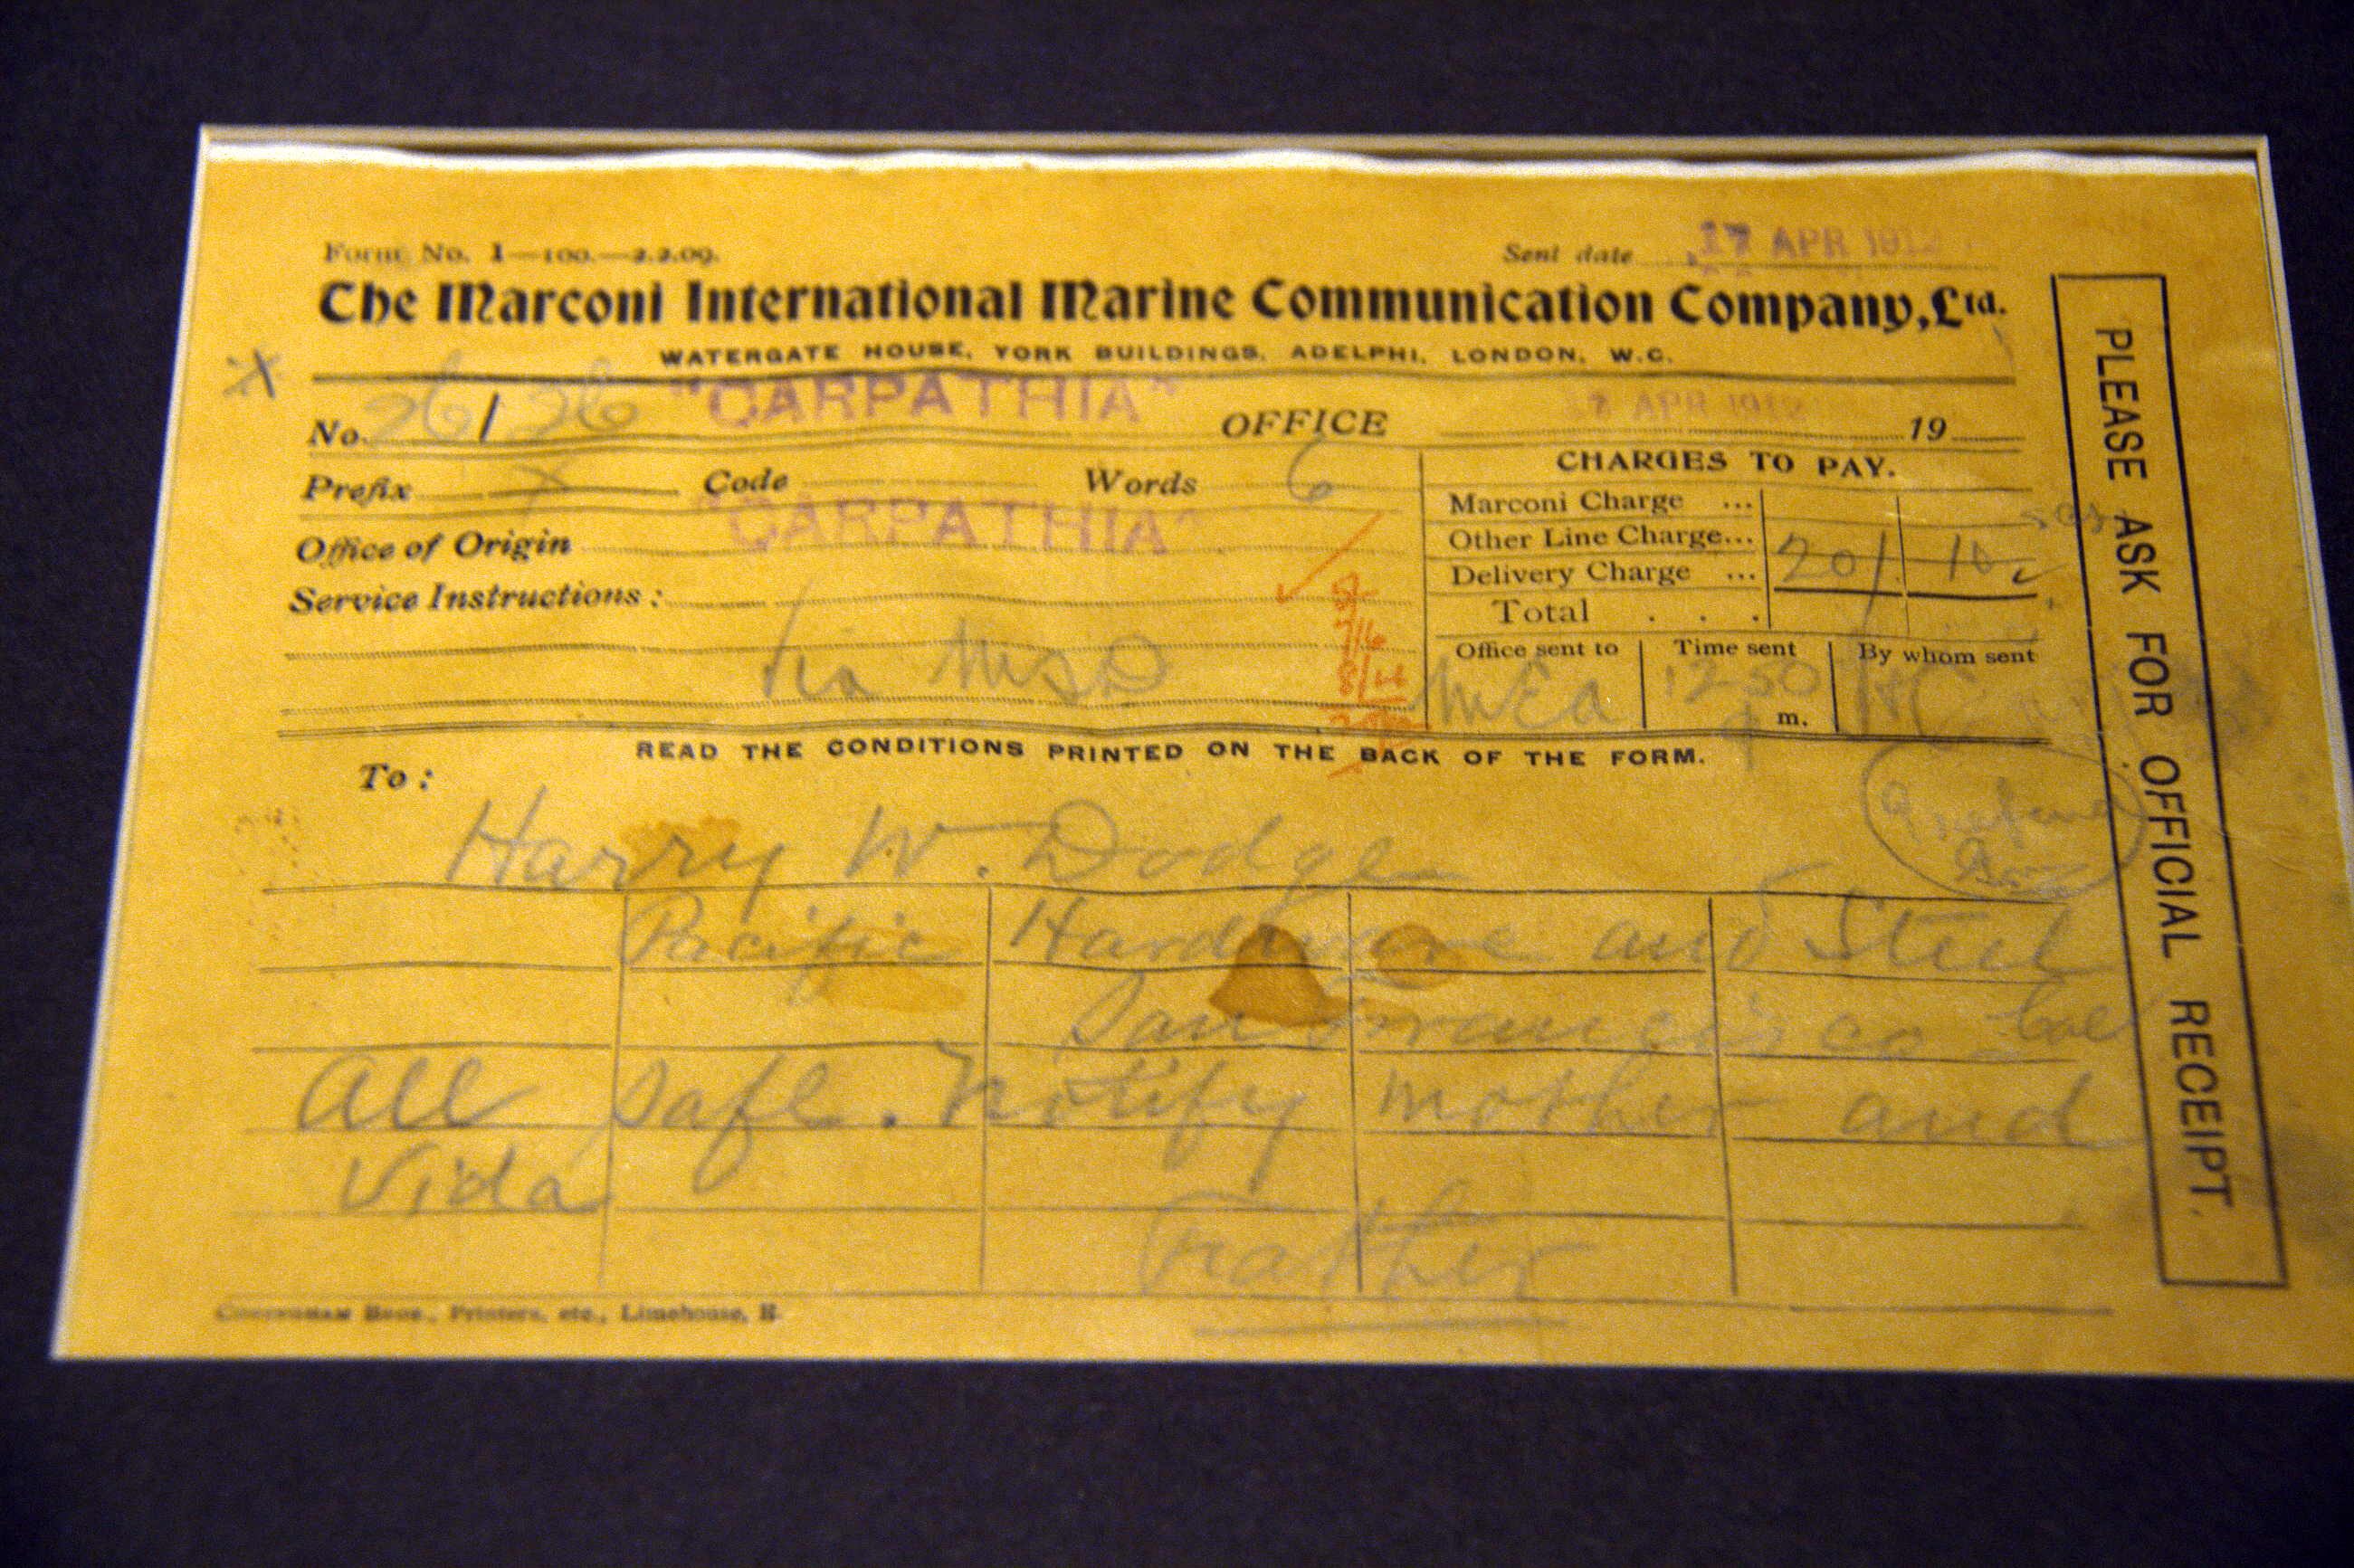 Form No. 1—100.—2.2.09.
Sent date 17 APR 1912
The Marconi International Marine Communication Company, Ltd.
WATERGATE HOUSE, YORK BUILDINGS, ADELPHI, LONDON, W.C.
X
No. 26/26 "CARPATHIA" OFFICE 17 APR 1912 19
Prefix X Code Words 6
CHARGES TO PAY.
Office of Origin "CARPATHIA"
Marconi Charge ...
Other Line Charge...
Delivery Charge ... 20/ 10
Total . . .
Service Instructions :
via MSD
5/-
7/6
8/4
Office sent to MEA
Time sent 12 50 a m.
By whom sent
READ THE CONDITIONS PRINTED ON THE BACK OF THE FORM.
To :
Harry W. Dodge
Pacific Hardware and Steel
San Francisco Cal
All safe. Notify mother and
Vida
Father
Printers, etc., Limehouse, E.
PLEASE ASK FOR OFFICIAL RECEIPT.